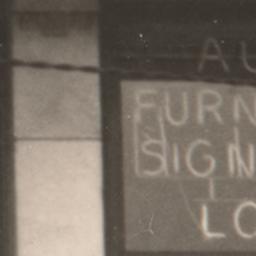 AU
FURN
SIGN
LO